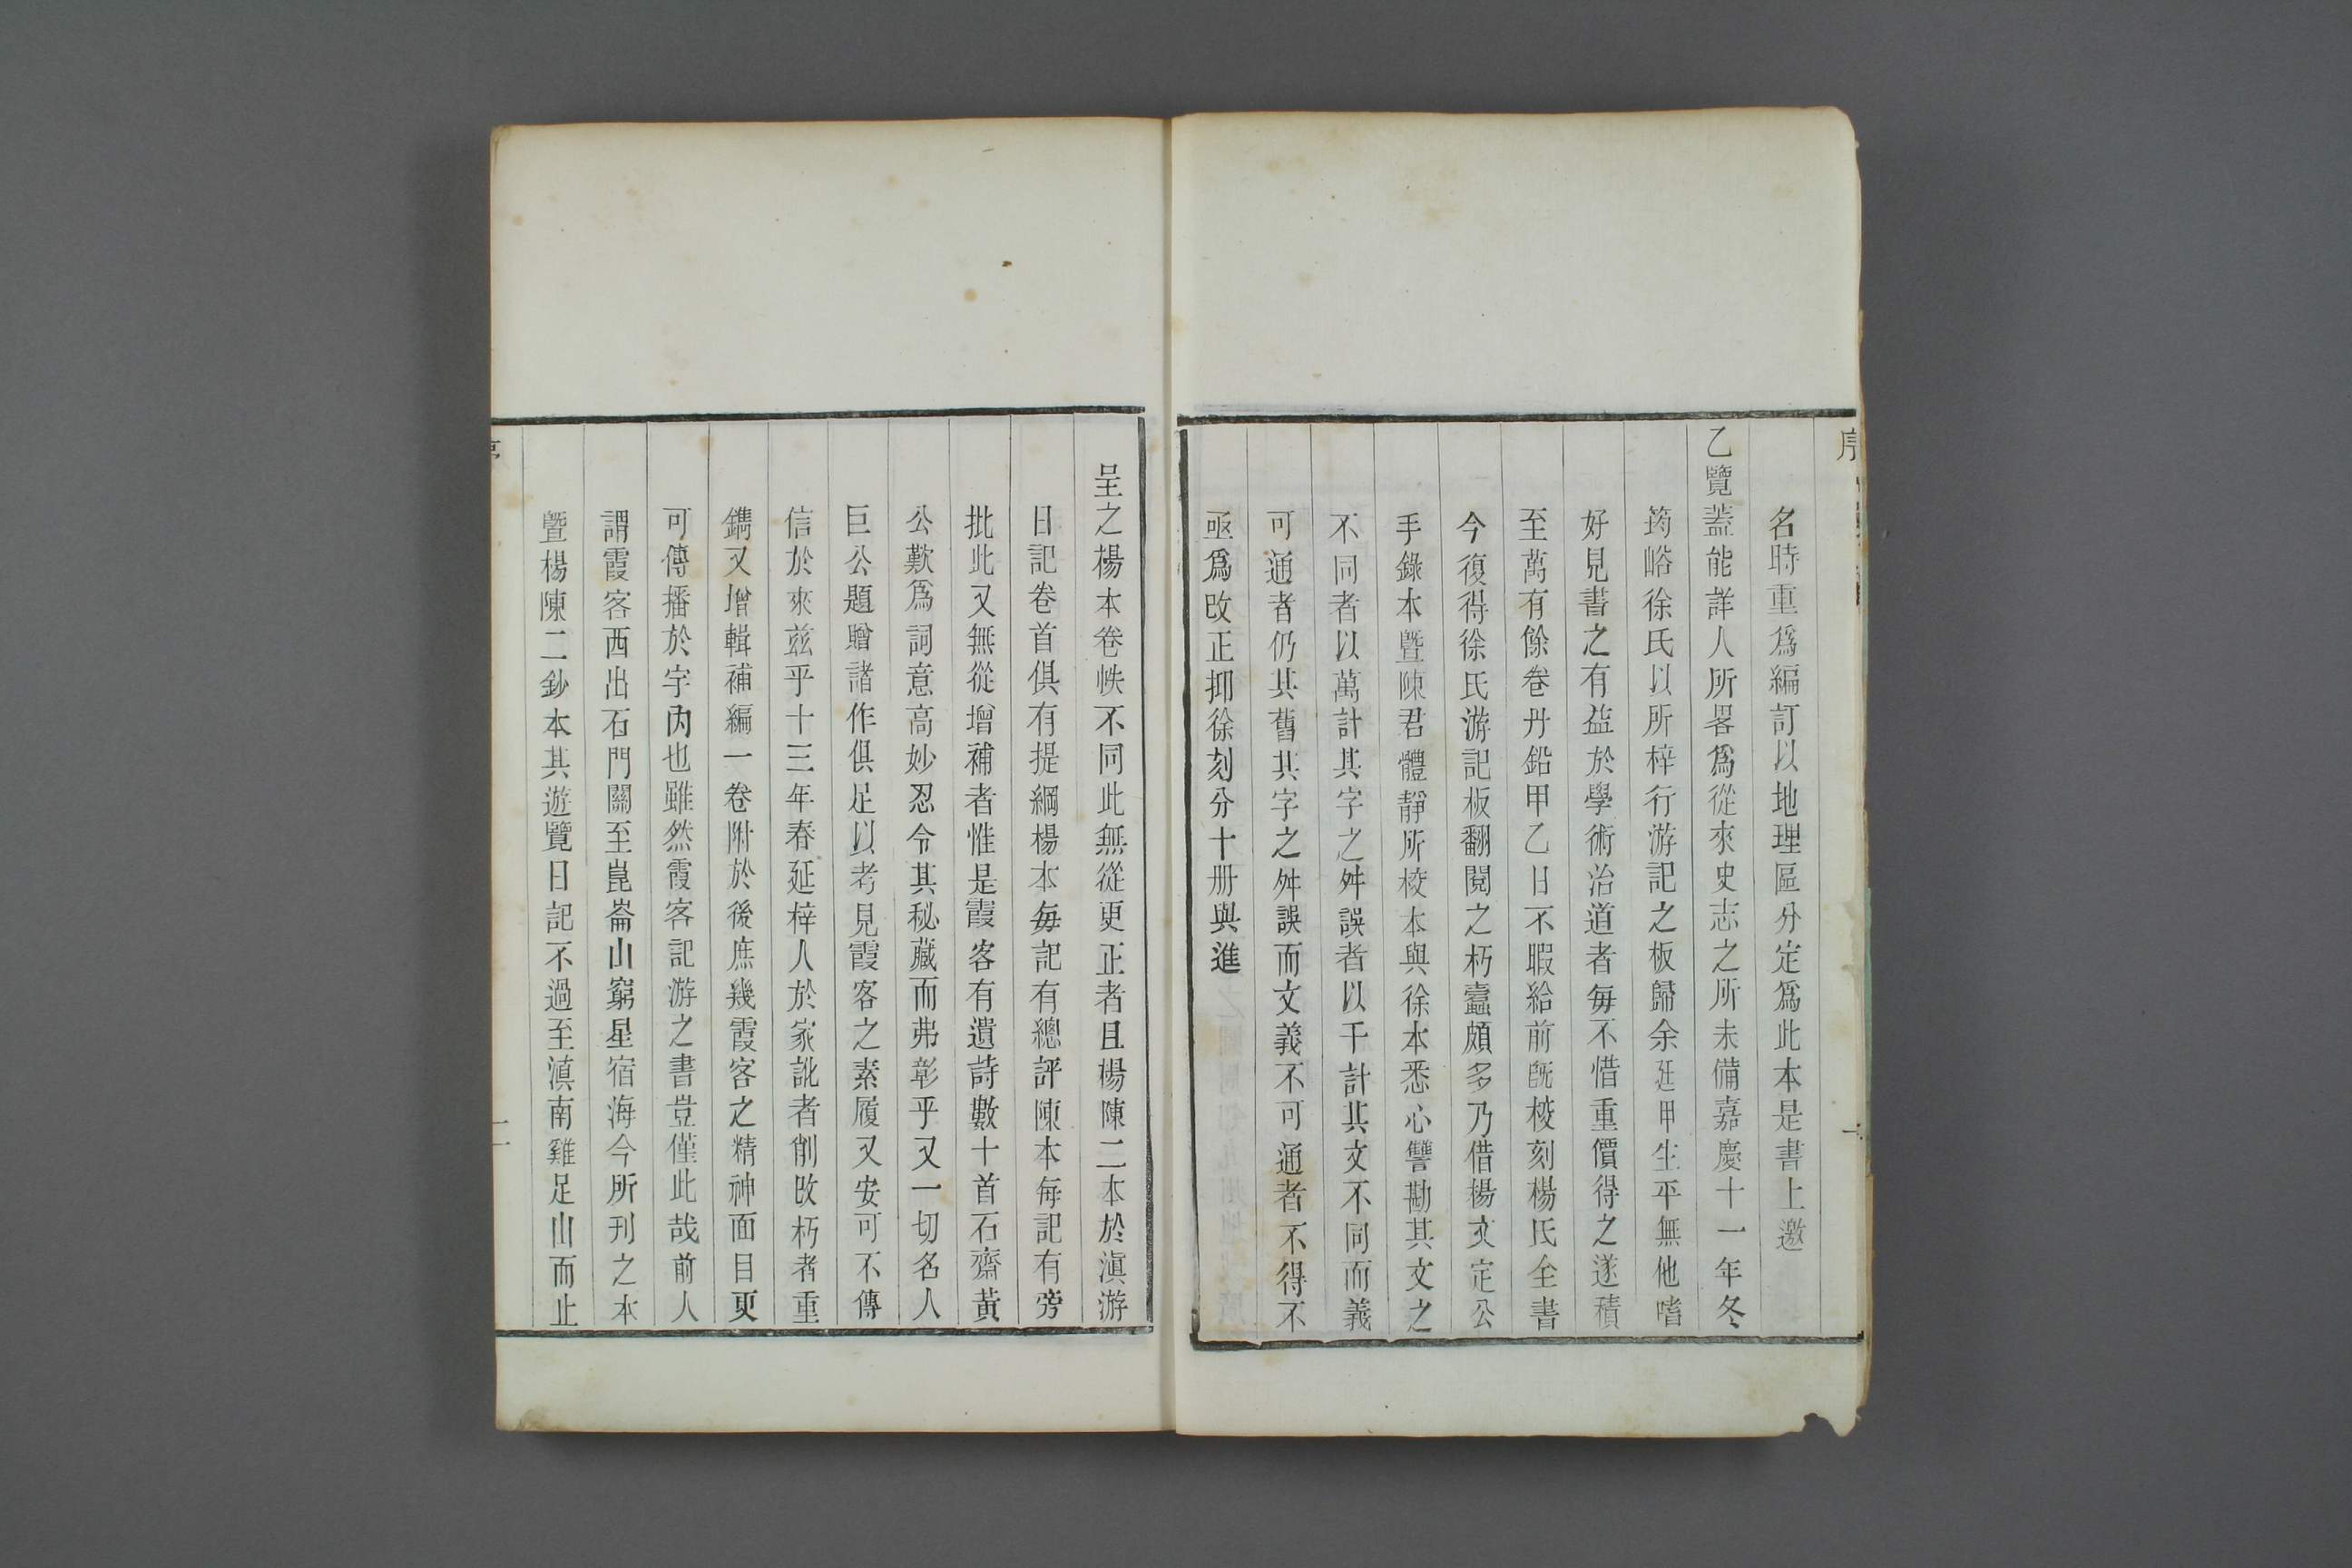 序
名時重爲編訂以地理區分定爲此本是書上邀
乙覽蓋能詳人所畧爲從來史志之所未備嘉慶十一年冬
筠峪徐氏以所梓行游記之板歸余廷甲生平無他嗜
好見書之有益於學術治道者每不惜重價得之遂積
至萬有餘卷丹鉛甲乙日不暇給前旣梭刻楊氏全書
今復得徐氏游記板翻閱之朽蠹頗多乃借楊文定公
手錄本暨陳君體靜所校本與徐本悉心讐勘其文之
不同者以萬計其字之舛誤者以千計其文不同而義
可通者仍其舊其字之舛誤而文義不可通者不得不
亟爲改正抑徐刻分十册與進
呈之楊本卷帙不同此無從更正者且楊陳二本於滇游
日記卷首俱有提綱楊本每記有總評陳本每記有旁
批此又無從增補者惟是霞客有遺詩數十首石齋黃
公歎爲詞意高妙忍令其秘藏而弗彰乎又一切名人
巨公題贈諸作俱足以考見霞客之素履又安可不傳
信於來兹乎十三年春延梓人於家訛者削改朽者重
鐫又增輯補編一卷附於後庶幾霞客之精神面目更
可傳播於宇內也雖然霞客記游之書豈僅此哉前人
謂霞客西出石門關至崑崙山窮星宿海今所刊之本
暨楊陳二鈔本其遊覽日記不過至滇南雞足山而止
二